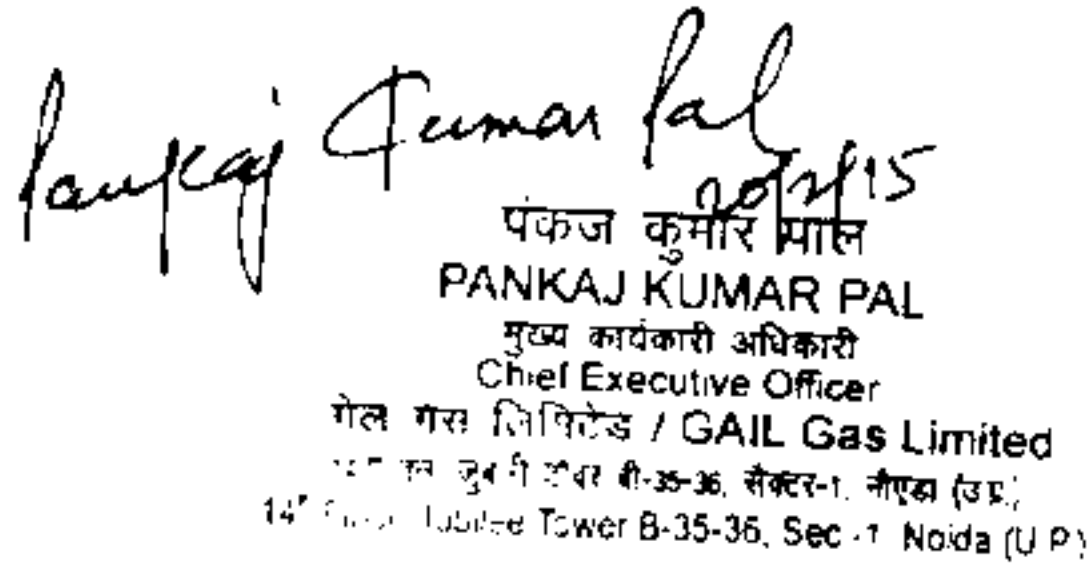 Pankaj Kumar Pal
20/2/15
पंकज कुमार पाल
PANKAJ KUMAR PAL
मुख्य कार्यकारी अधिकारी
Chief Executive Officer
गेल गैस लिमिटेड / GAIL Gas Limited
बी-35-36, सैक्टर-1, नौएडा (उ.प्र.)
14th Floor Jubilee Tower B-35-36, Sec.-1 Noida (U.P.)